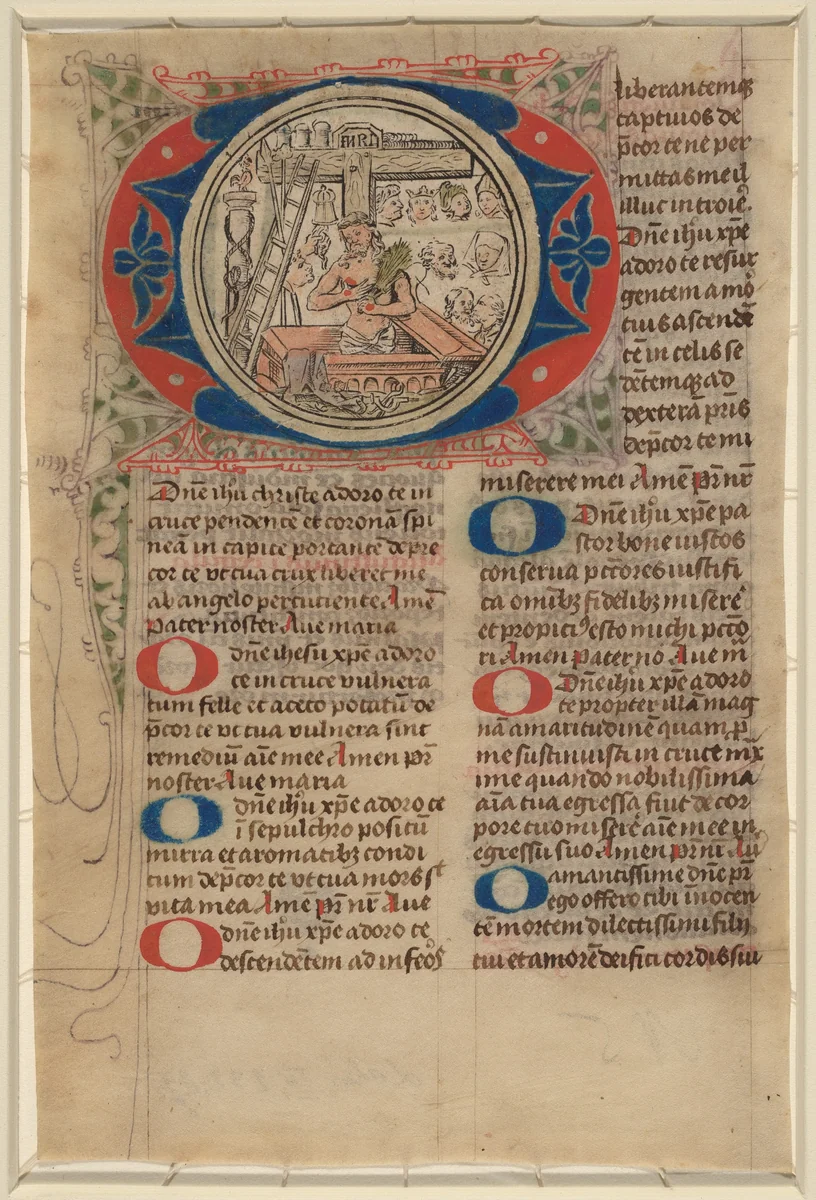 INRI
Dn̄e ihū christe adoro te in
cruce pendentē et coronā spi
neā in capite portantē depre
cor te vt tua crux liberet me
ab angelo percuciente Amē
Pater nōster Aue maria
O dn̄e ihesu xp̄e adoro
te in cruce vulnera
tum felle et aceto potatū de
p̄cor te vt tua vulnera sint
remediū aīe mee Amen pr̄
noster Aue maria
O dn̄e ihū xp̄e adoro te
ī sepulchro positū
mirra et aromatibz condi
tum dep̄cor te vt tua mors sͭ
vita mea Amē pr̄ nr̄ Aue
O dn̄e ihū xp̄e adoro te
descendētem ad infeos
liberantemqz
captiuos de
p̄cor te ne per
mittas me il
illuc introire.
Dn̄e ihū xp̄e
adoro te resur
gentem a mo
tuis ascendē
tē in celis se
dētemqz ad
dexterā pr̄is
dep̄cor te mi
miserere mei Amē pr̄ nr̄
O Dn̄e ihū xp̄e pa
stor bone iustos
conserua pctores iustifi
ca omībz fidelibz miserē
et propiciꝰ esto michi pctō
ri Amen Pater no Aue m̄
O Dn̄e ihū xp̄e adoro
te propter illā mag
nā amaritudinē quam p̱
me sustinuisti in cruce mīx
ime quando nobilissima
aīa tua egressa fiut de cor
pore tuo miserē aīe mee in
egressu suo Amen pr̄ nr̄ Aū
O amantissime dn̄e pr̄
ego offero tibi īnocen
tē mortem dilectissimi filij
tui et amorē deifici cordis sui